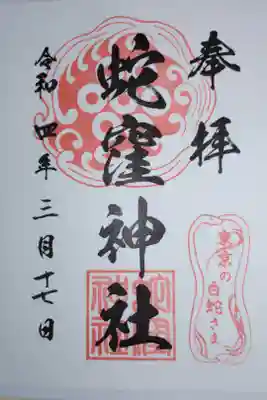 奉拝
東京の
白蛇さま
蛇窪神社
蛇窪
神社
令和四年三月十七日